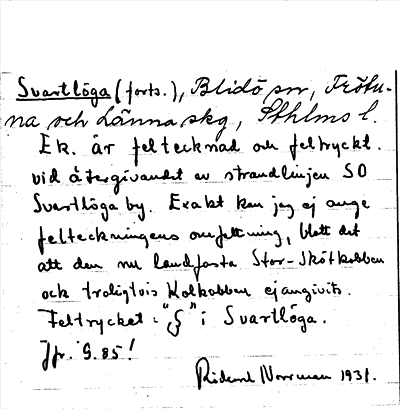 Svartlöga (forts.), Blidö sn, Frötu-
na och Länna skg, Sthlms l.
Ek. är feltecknad och feltryckt
vid återgivandet av strandlinjen SO
Svartlöga by. Exakt kan jag ej ange
felteckningens omfattning, blott det
att den nu landfasta Stor-Skötkobben
och troligtvis Kalkobben ej angivits.
Feltrycket: "ξ" i Svartlöga.
Jfr. G. 85!
Rickard Norrman 1931.